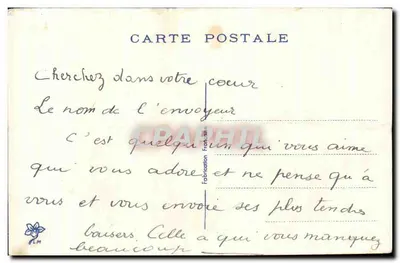 CARTE POSTALE
Cherchez dans votre cœur
Le nom de l'envoyeur
C'est quelqu'un qui vous aime
CPARAMA
qui vous adore et ne pense qu'à
vous et vous envoie ses plus tendres
baisers. Celle a qui vous manquez
beaucoup
Fabrication Française